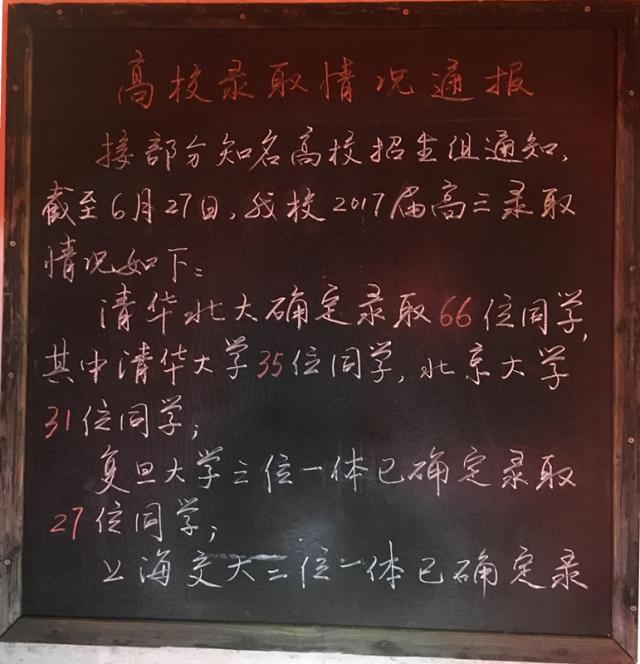 高校录取情况通报
接部分知名高校招生组通知,
截至6月27日,我校2017届高三录取
情况如下:
清华北大确定录取66位同学,
其中清华大学35位同学,北京大学
31位同学;
复旦大学三位一体已确定录取
27位同学;
上海交大三位一体已确定录